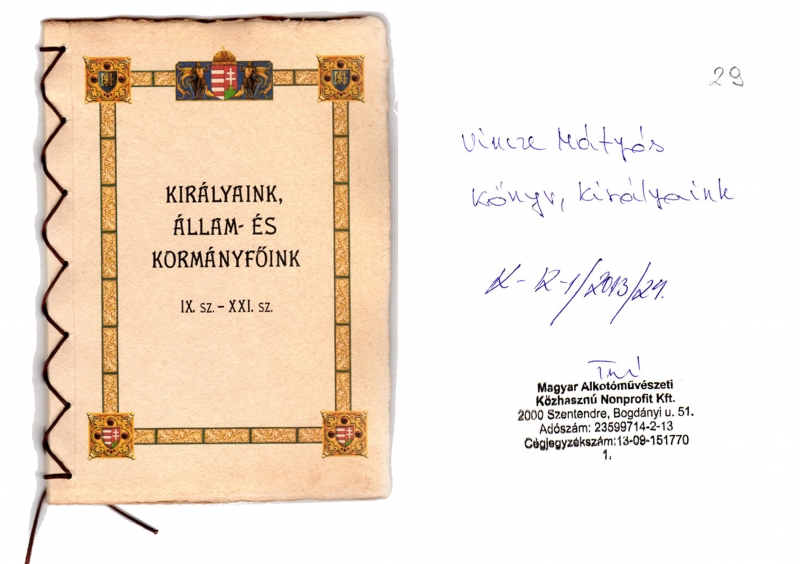 KIRÁLYAINK,
ÁLLAM- ÉS
KORMÁNYFŐINK
IX. SZ. – XXI. SZ.
29
Vincze Mátyás
Könyv, Királyaink
K-R-1/2013/29.
Magyar Alkotóművészeti
Közhasznú Nonprofit Kft.
2000 Szentendre, Bogdányi u. 51.
Adószám: 23599714-2-13
Cégjegyzékszám:13-09-151770
1.